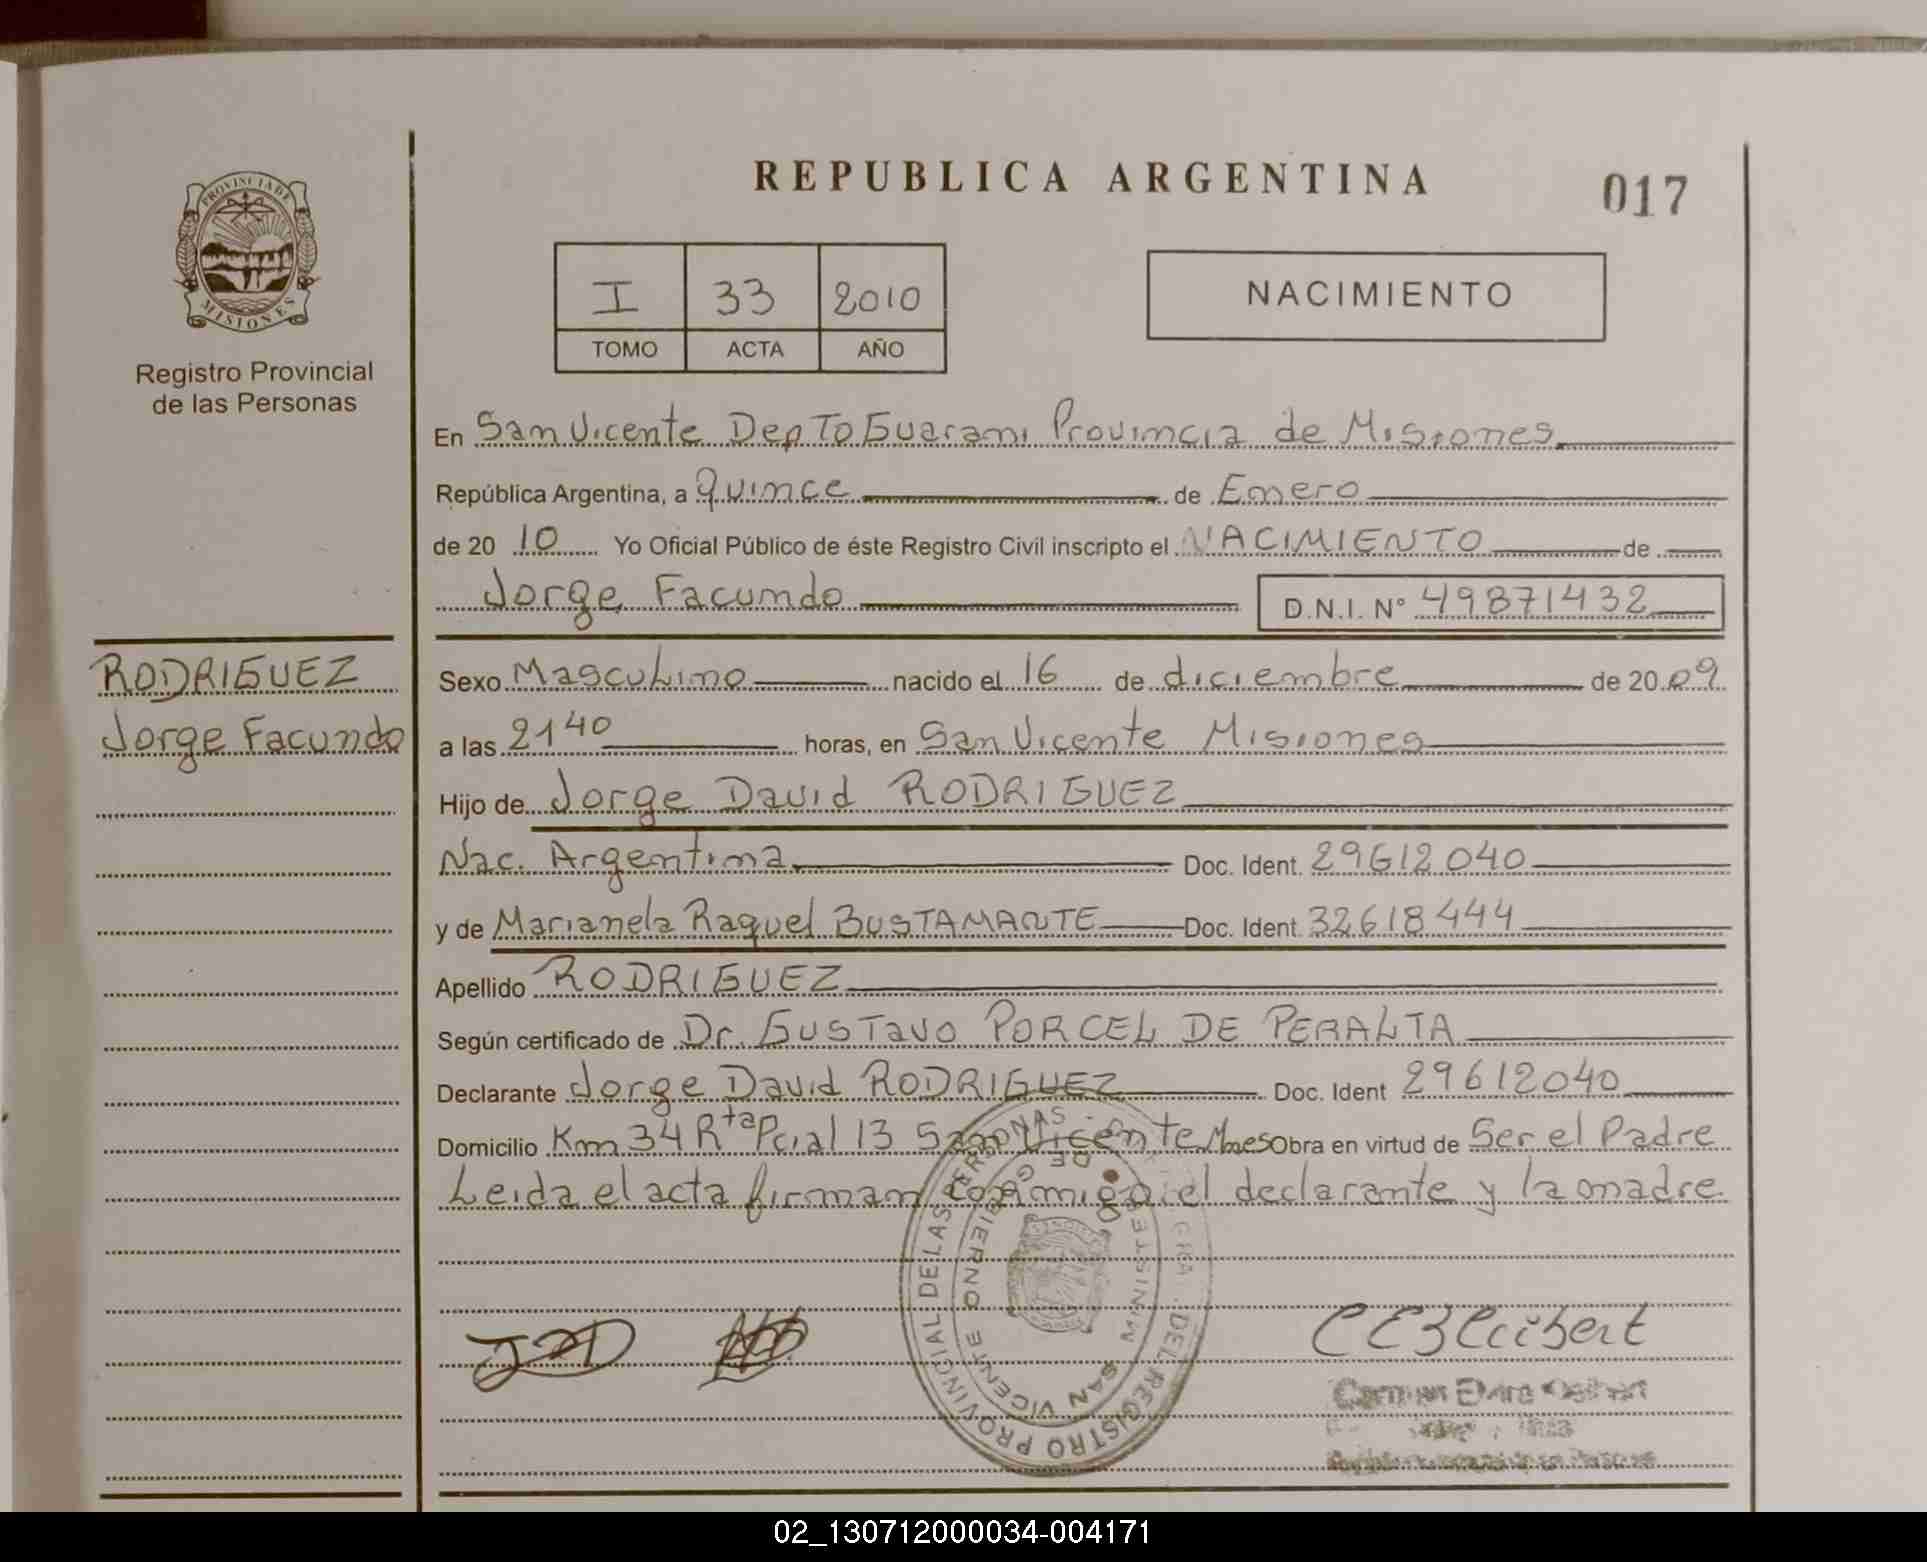 PROVINCIA DE
MISIONES
Registro Provincial
de las Personas
RODRIGUEZ
Jorge Facundo
REPUBLICA ARGENTINA
017
I 33 2010
TOMO ACTA AÑO
NACIMIENTO
En San Vicente Depto Guarani Provincia de Misiones
República Argentina, a quince de Enero
de 20 10 Yo Oficial Público de éste Registro Civil inscripto el NACIMIENTO de
Jorge Facundo D.N.I. N° 49871432
Sexo Masculino nacido el 16 de diciembre de 20 09
a las 2140 horas, en San Vicente Misiones
Hijo de Jorge David RODRIGUEZ
Nac. Argentina Doc. Ident. 29612040
y de Marianela Raquel BUSTAMANTE Doc. Ident 32618444
Apellido RODRIGUEZ
Según certificado de Dr. GUSTavo PORCEL DE PERALTA
Declarante Jorge David RODRIGUEZ Doc. Ident 29612040
Domicilio Km 34 Rta Pcial 13 San Vicente Mnes Obra en virtud de Ser el Padre
Leida el acta firman conmigo el declarante y la madre
REGISTRO PROVINCIAL DE LAS PERSONAS
MINISTERIO DE GOBIERNO
SAN VICENTE
02_130712000034-004171